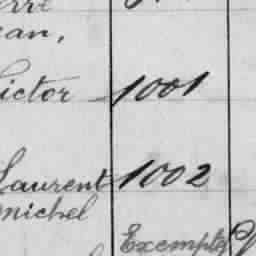 ean,
ictor 1001
Laurent 1002
michel
Exempté